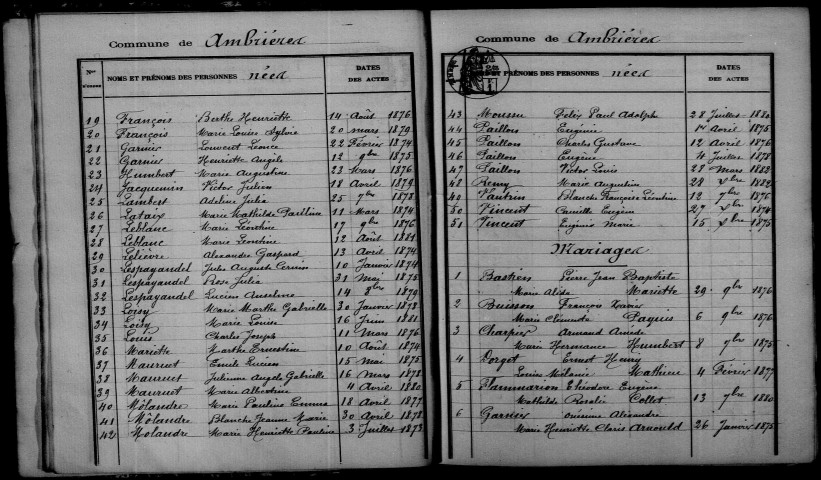 Commune de Ambrières
Nos d'ordre NOMS ET PRÉNOMS DES PERSONNES nées DATES DES ACTES
19 François Berthe Henriette 14 Août 1876
20 François Marie Louise Sylvie 20 mars 1879
21 Garnier Louvent Léonce 22 Février 1874
22 Garnier Henriette Angèle 12 9bre 1875
23 Humbert Marie Augustine 23 Mars 1876
24 Jacquemin Victor Julien 18 Avril 1879
25 Lambert Adeline Julia 25 7bre 1878
26 Lataix Marie Mathilde Pauline 11 Mars 1874
27 Leblanc Marie Léontine 17 9bre 1876
28 Leblanc Marie Léontine 12 Août 1881
29 Lelièvre Alexandre Gaspard 13 Avril 1874
30 Lespayandel Jules Auguste 10 Janvier 1874
31 Lespayandel Rose Julia 31 Mai 1875
32 Lespayandel Lucien Anselme 14 9bre 1879
33 Loisy Marie Marthe Gabrielle 30 Janvier 1878
34 Loisy Marie Louise 16 Juin 1881
35 Louis Charles Joseph 11 Mars 1876
36 Mariette Marthe Ernestine 10 Août 1874
37 Mauruet Emile Lucien 15 Mai 1875
38 Mauruet Julienne Angèle Gabrielle 16 Mars 1878
39 Mauruet Marie Albertine 4 Avril 1880
40 Mólandre Marie Pauline Emma 18 Avril 1877
41 Mólandre Blanche Jeanne Marie 30 Avril 1878
42 Molandre Marie Henriette Pauline 3 Juillet 1873
Commune de Ambrières
ET PRÉNOMS DES PERSONNES nées DATES DES ACTES
43 Moussu Felix Paul Adolphe 28 Juillet 1880
44 Paillon Eugénie 14 Avril 1875
45 Paillon Charles Gustave 12 Avril 1876
46 Paillon Eugène 4 Juillet 1878
47 Paillon Victor Louis 28 Mars 1882
48 Remy Marie Augustine 28 Xbre 1882
40 Vautrin Blanche Françoise Léontine 12 7bre 1876
50 Vincent Camille Eugène 27 Xbre 1874
51 Vincent Eugénie Marie 15 Xbre 1875
Mariages
1 Bastien Pierre Jean Baptiste
Marie Alida Mariette 29 9bre 1876
2 Buisson François Xavier
Marie Clémente Paquis 6 9bre 1876
3 Charpier Armand Amédé
Marie Hermance Humbert 8 7bre 1875
4 Dorget Ernest Henry
Louise Mélanie Mathieu 4 Février 1877
5 Flammarion Théodore Eugène
Mathilde Rosalie Collot 13 7bre 1880
6 Garnier Onésime Alexandre
Marie Henriette Claris Arnould 26 Janvier 1875